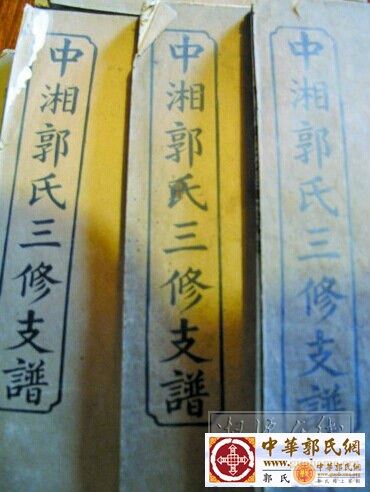 中湘郭氏三修支譜
中湘郭氏三修支譜
中湘郭氏三修支譜
中華郭氏網
郭氏